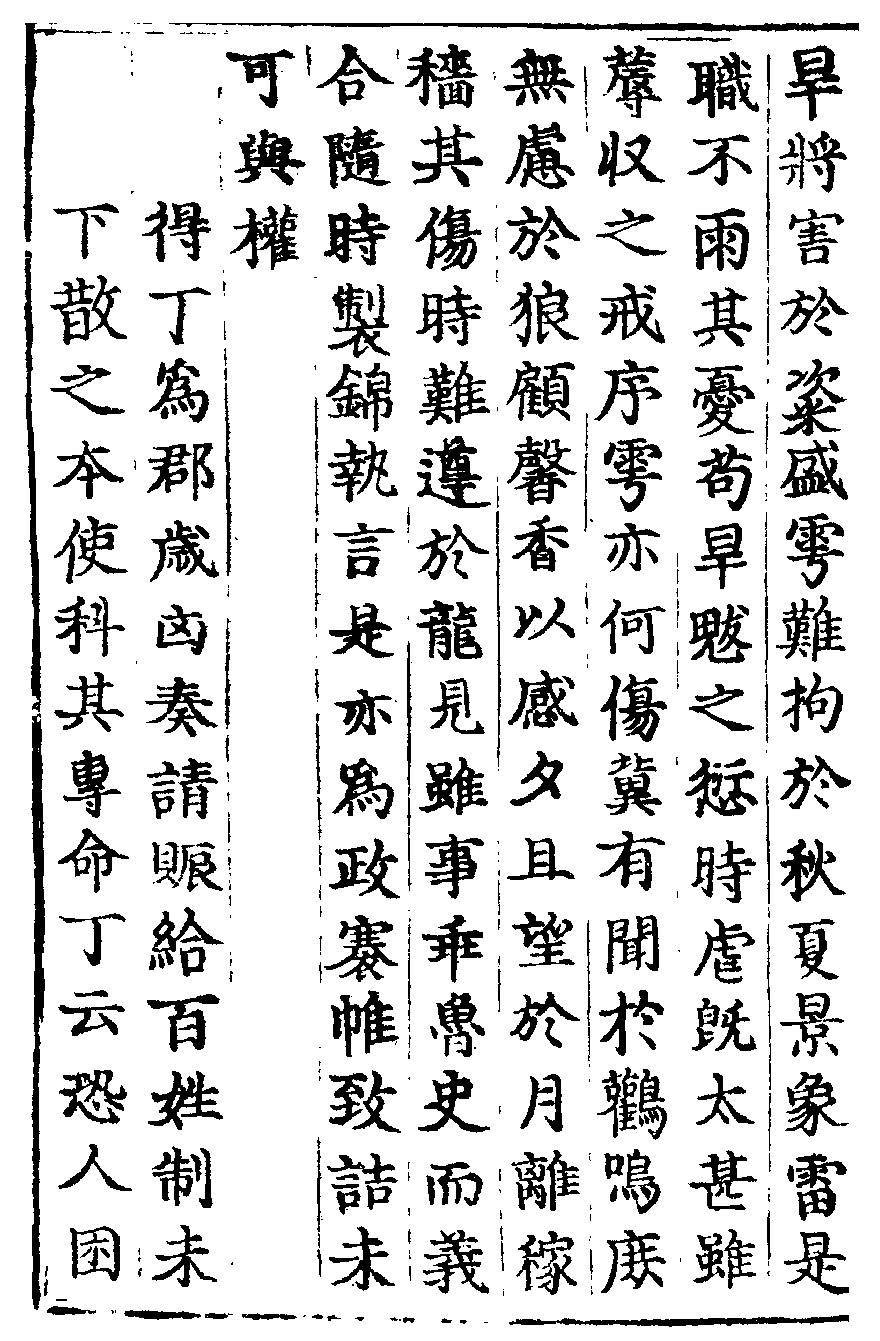 旱將害於粢盛雩難拘於秋夏景象雷是
職不雨其憂苟旱魃之愆時虐旣太甚雖
蓐収之戒序雩亦何傷冀有聞於鸛鳴庻
無慮於狼顧馨香以感夕且望於月離稼
穡其傷時難遵於龍見雖事乖魯史而義
合隨時製錦執言是亦爲政褰帷致詰未
可與權
得丁爲郡歳凶奏請賑給百姓制未
下散之本使科其專命丁云恐人困